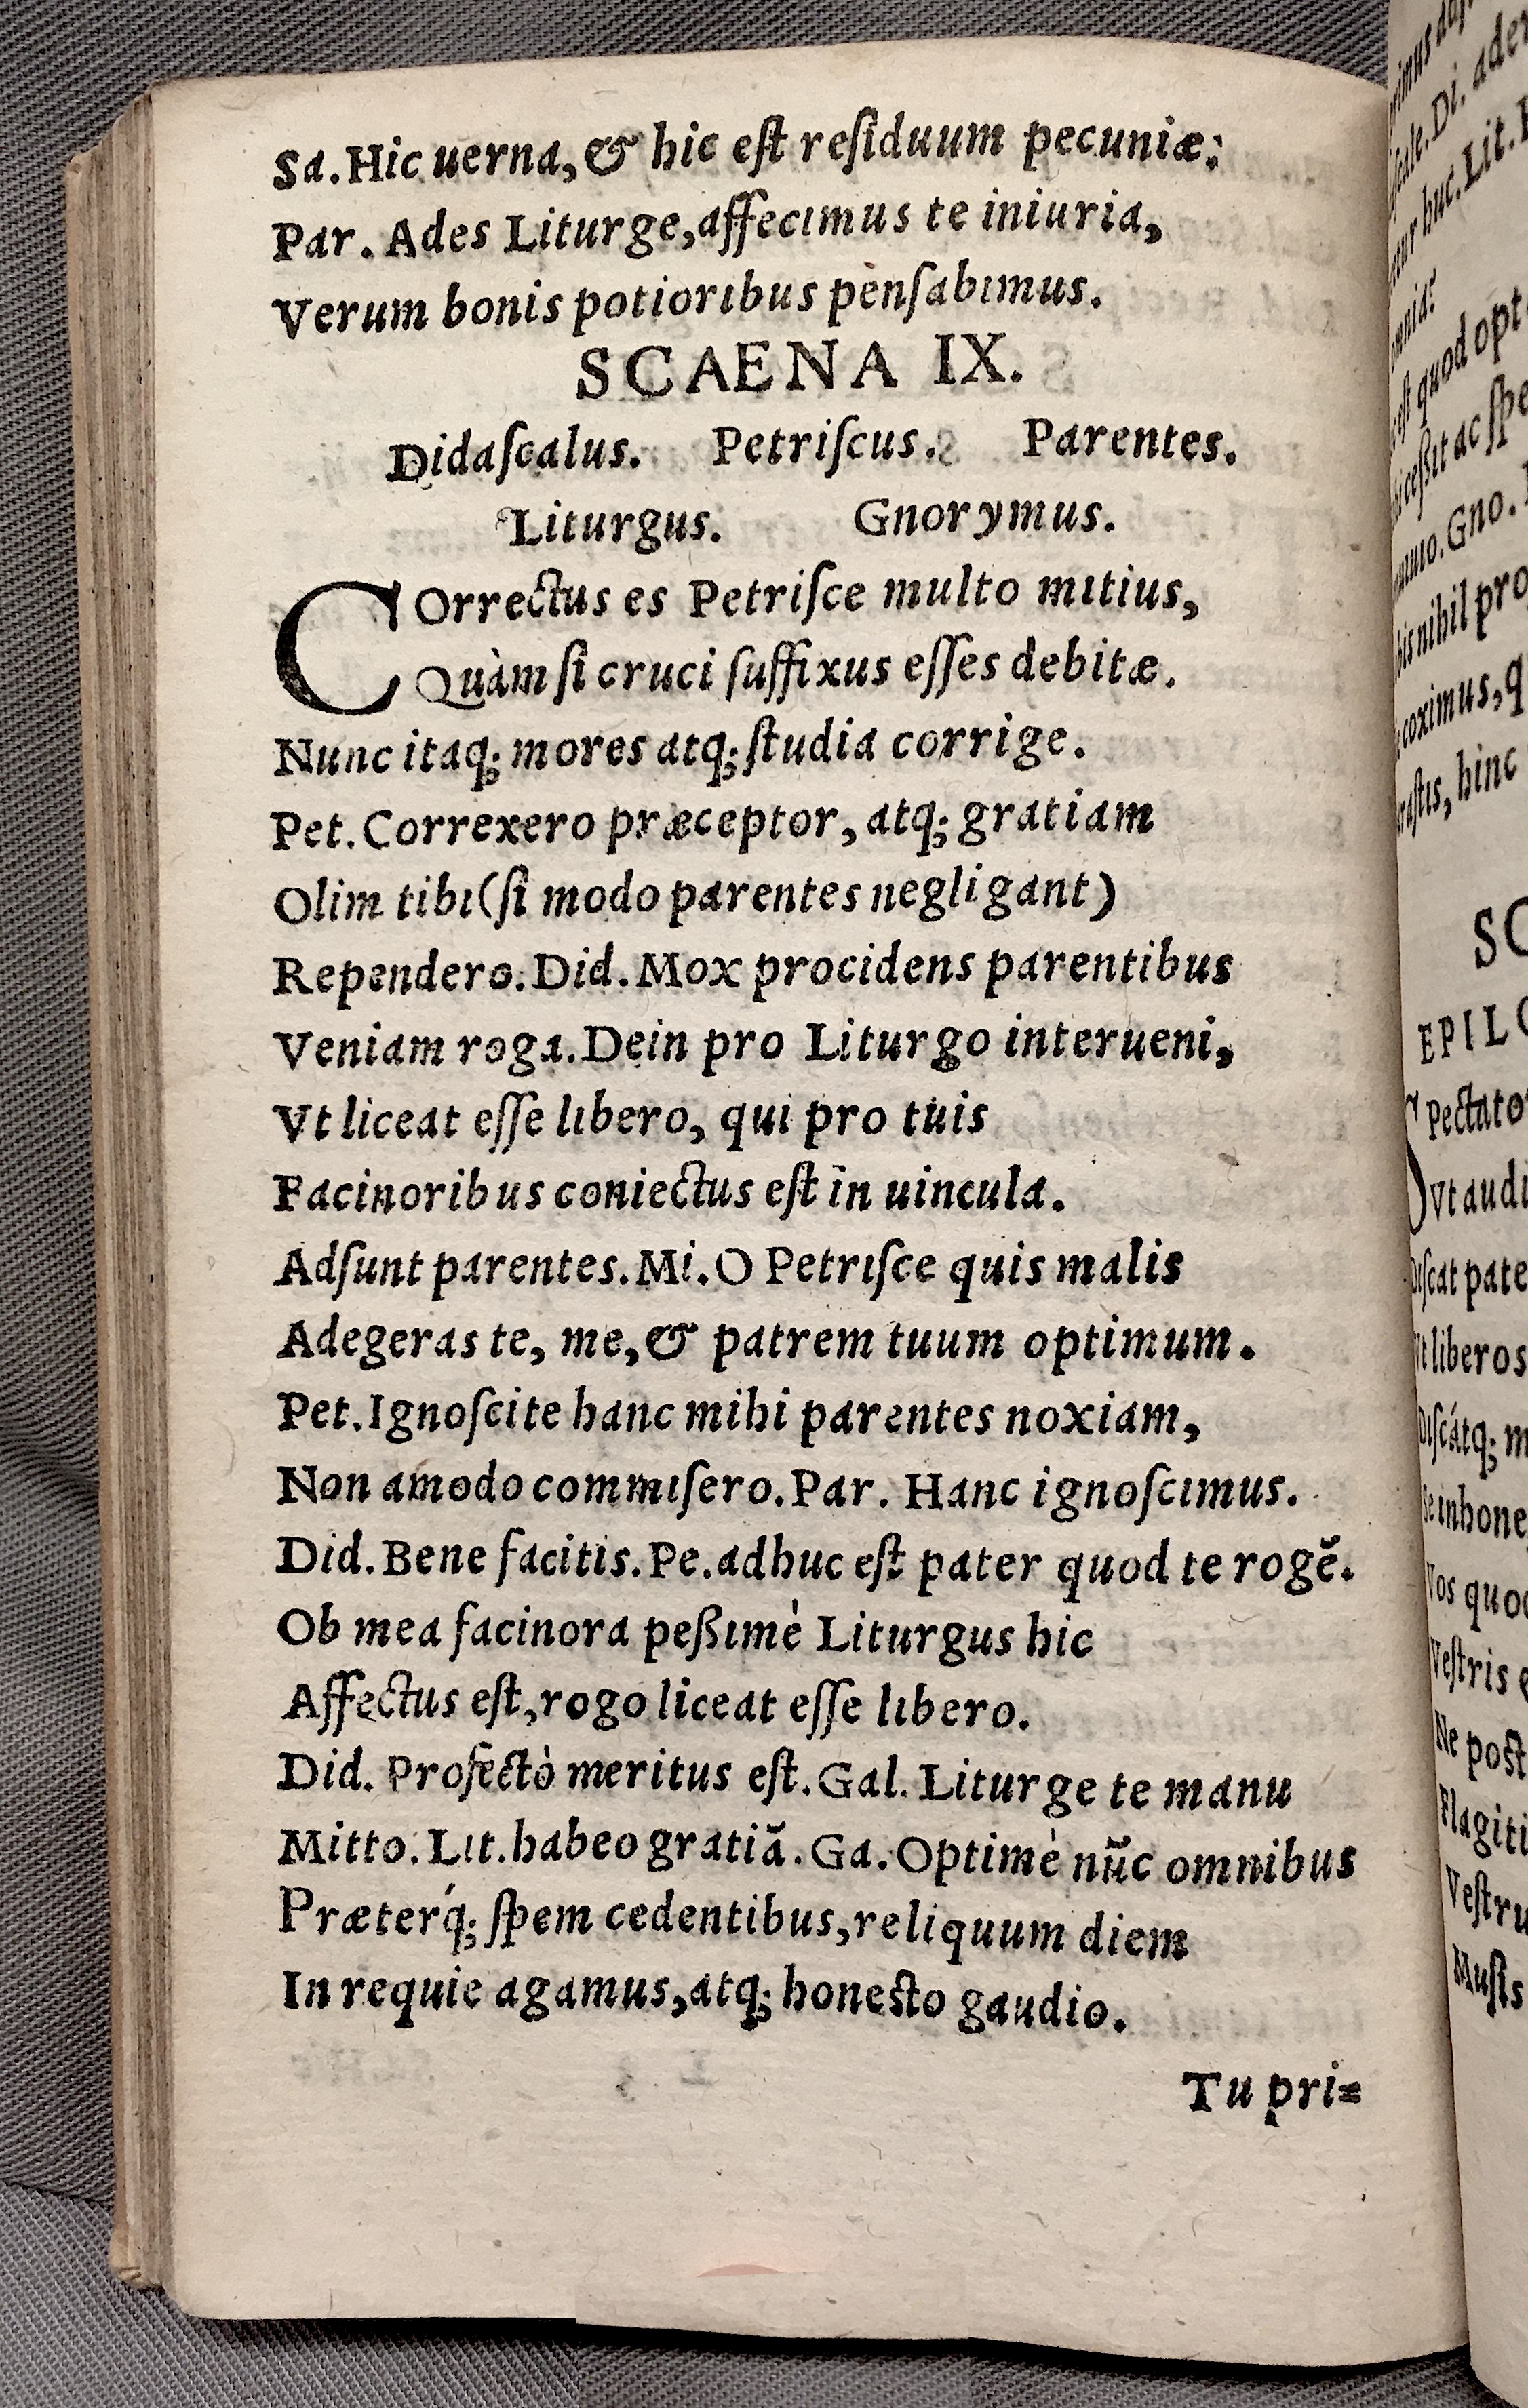 Sa. Hic uerna, & hic eſt reſiduum pecuniæ:
Par. Ades Liturge, affecimus te iniuria,
Verum bonis potioribus penſabimus.
SCAENA IX.
Didaſcalus. Petriſcus. Parentes.
Liturgus. Gnorymus.
COrrectus es Petriſce multo mitius,
Quàm ſi cruci ſuffixus eſſes debitæ.
Nunc itaq; mores atq; ſtudia corrige.
Pet. Correxero præceptor, atq; gratiam
Olim tibi (ſi modo parentes negligant)
Rependero. Did. Mox procidens parentibus
Veniam roga. Dein pro Liturgo interueni,
Vt liceat eſſe libero, qui pro tuis
Facinoribus coniectus eſt in uincula.
Adſunt parentes. Mi. O Petriſce quis malis
Adegeras te, me, & patrem tuum optimum.
Pet. Ignoſcite hanc mihi parentes noxiam,
Non amodo commiſero. Par. Hanc ignoſcimus.
Did. Bene facitis. Pe. adhuc eſt pater quod te rogẽ.
Ob mea facinora peßimè Liturgus hic
Affectus eſt, rogo liceat eſſe libero.
Did. Profectò meritus eſt. Gal. Liturge te manu
Mitto. Lit. habeo gratiã. Ga. Optimè nũc omnibus
Præterq́; ſpem cedentibus, reliquum diem
In requie agamus, atq; honeſto gaudio.
Tu pri=
huc. Lit.
eſt quod
ac
Gno.
nihil
coximus,
hinc
EPILO
Vt audi
liberos
Vos
Veſtris
Ne poſt
Muſis